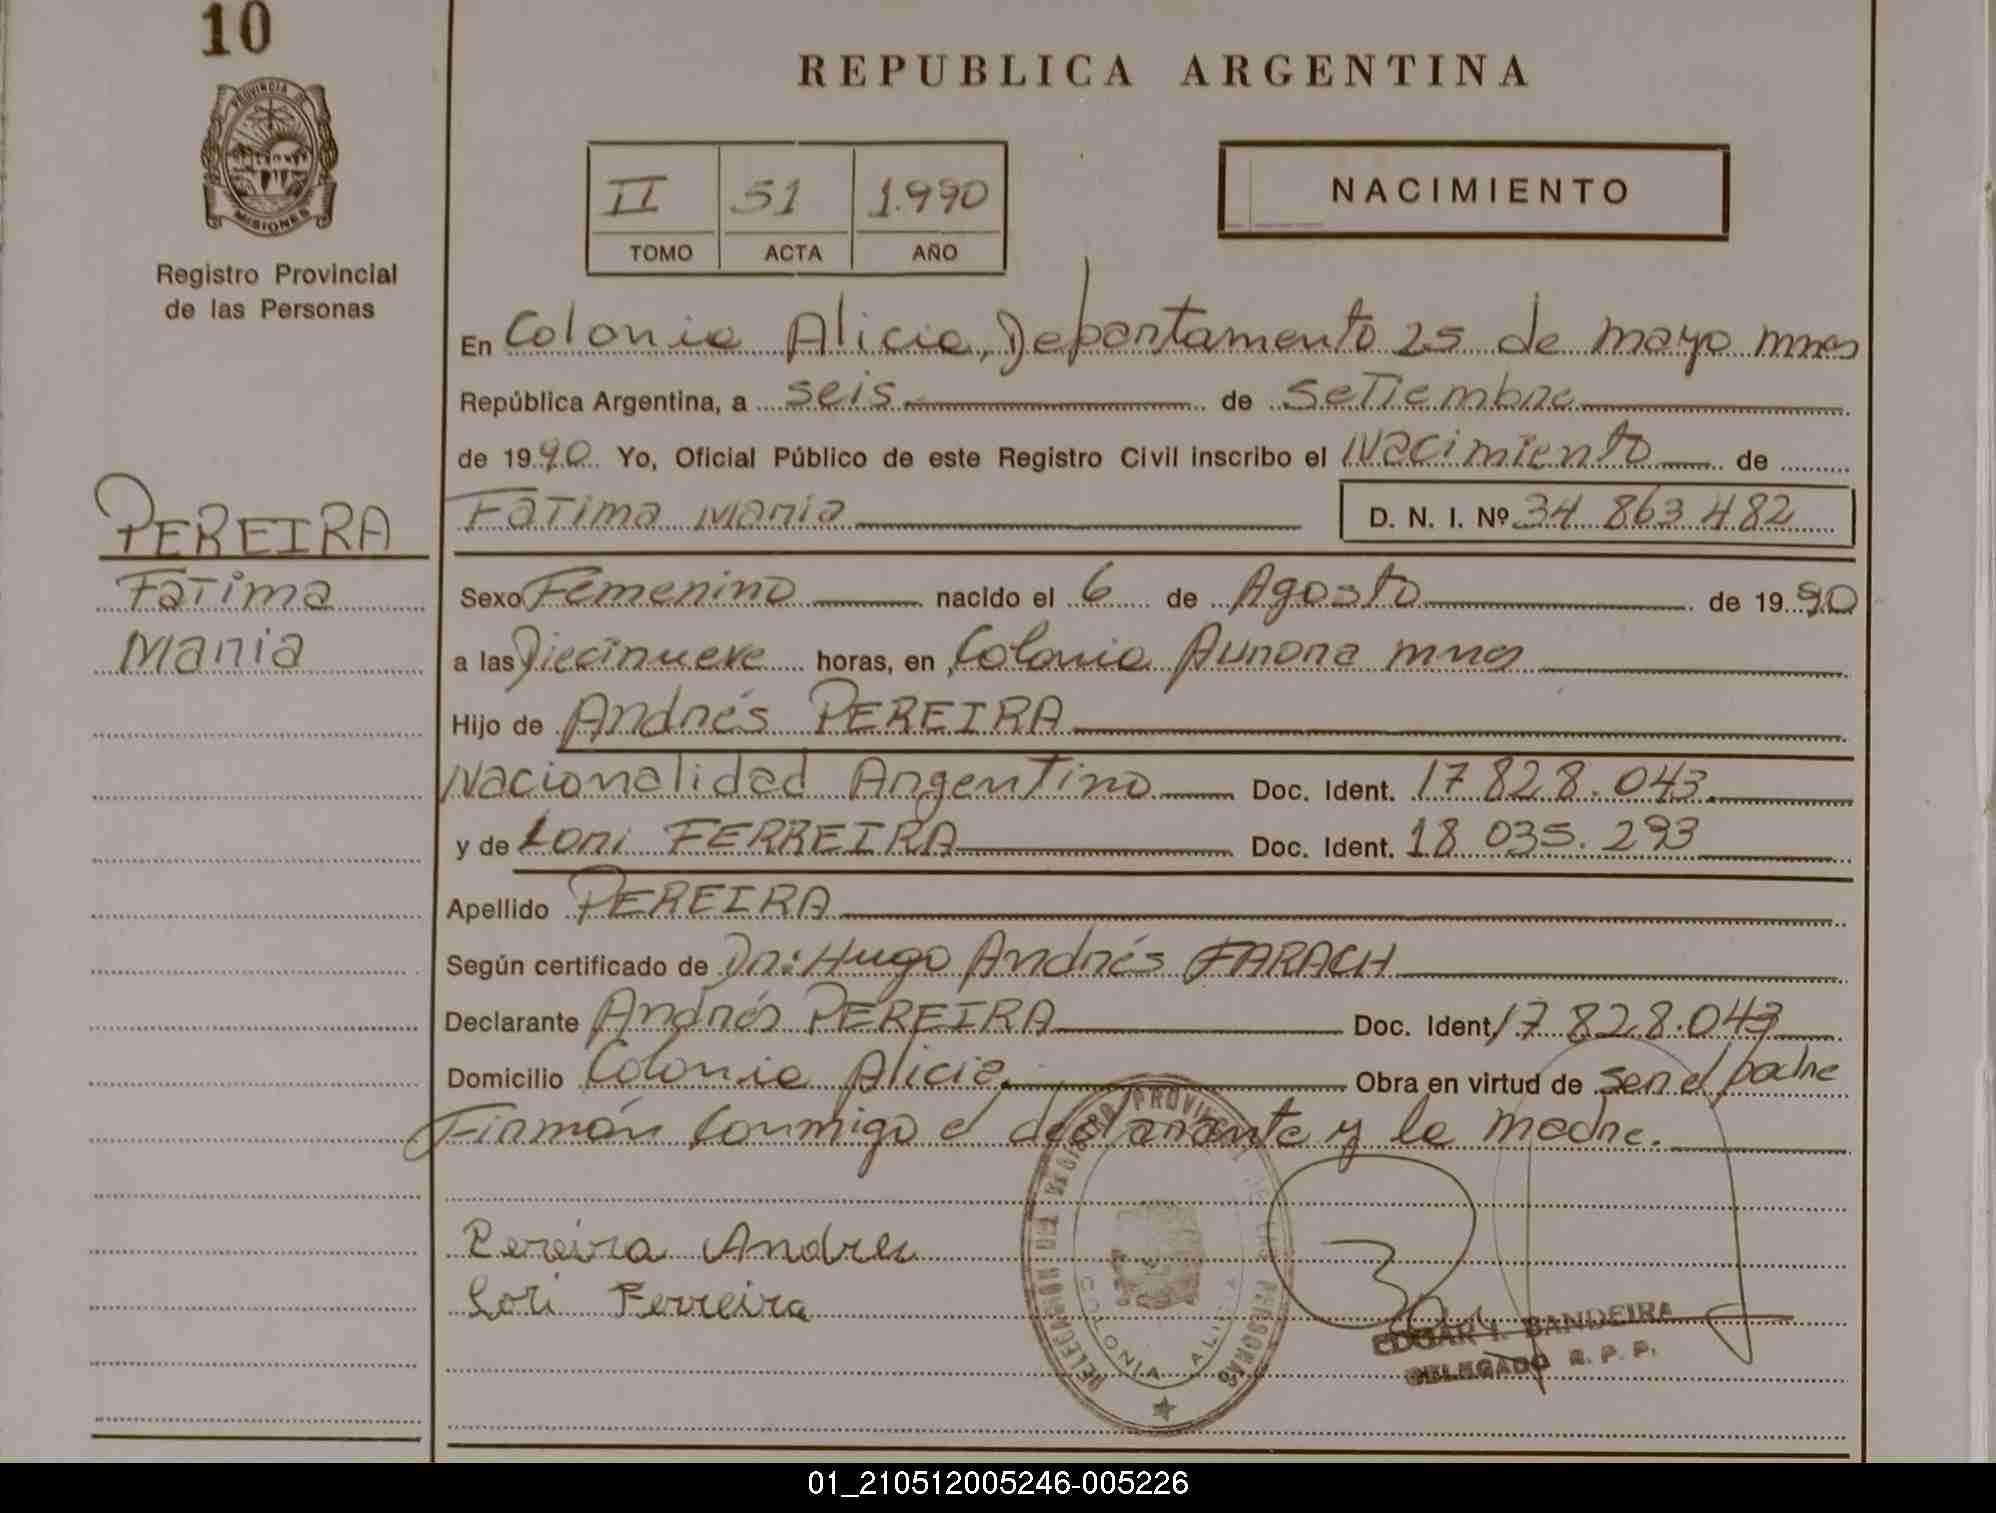 10
PROVINCIA DE
MISIONES
Registro Provincial
de las Personas
PEREIRA
Fatima
Maria
REPUBLICA ARGENTINA
II 51 1.990
TOMO ACTA AÑO
NACIMIENTO
En Colonia Alicia, Departamento 25 de mayo mnes
República Argentina, a seis de setiembre
de 1990 Yo, Oficial Público de este Registro Civil inscribo el Nacimiento de
Fatima Maria D. N. I. Nº 34 863 482
Sexo Femenino nacido el 6 de Agosto de 1990
a las Diecinueve horas, en Colonia Aurora mnes
Hijo de Andrés PEREIRA
Nacionalidad Argentino Doc. Ident. 17 828.043.
y de Lori FERREIRA Doc. Ident. 18 035.293
Apellido PEREIRA
Según certificado de Dr: Hugo Andrés FARACH
Declarante Andrés PEREIRA Doc. Ident. 17 828.043
Domicilio Colonia Alicia. Obra en virtud de ser el padre
Firmán conmigo el declarante y la madre.
Pereira Andres
Lori Ferreira
DELEGACION DEL REGISTRO PROVINCIAL DE LAS PERSONAS
COLONIA ALICIA
EDGAR I. BANDEIRA
DELEGADO R. P. P.
01_210512005246-005226